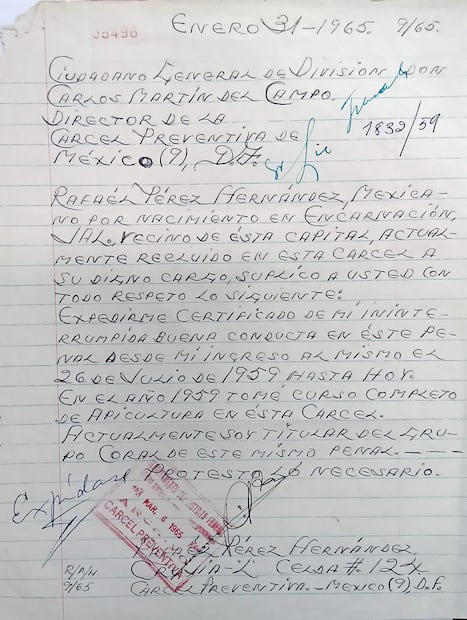 05496
ENERO 31-1965. 9/65.
CIUDADANO GENERAL DE DIVISION, DON
CARLOS MARTÍN DEL CAMPO.
DIRECTOR DE LA
CARCEL PREVENTIVA DE
MÉXICO (9), D.F.
Lic
1832/59
RAFAÉL PÉREZ HERNÁNDEZ, MEXICA-
NO POR NACIMIENTO EN ENCARNACIÓN,
JAL. VECINO DE ÉSTA CAPITAL, ACTUAL-
MENTE RECLUÍDO EN ESTA CARCEL A
SU DIGNO CARGO, SUPLICO A USTED CON
TODO RESPETO LO SIGUIENTE:
EXPEDIRME CERTIFICADO DE MI ININTE-
RRUMPIDA BUENA CONDUCTA EN ÉSTE PE-
NAL DESDE MI INGRESO AL MISMO EL
26 DE JULIO DE 1959 HASTA HOY.
EN EL AÑO 1959 TOMÉ CURSO COMPLETO
DE APICULTURA EN ÉSTA CARCEL.
ACTUALMENTE SOY TITULAR DEL GRU-
PO CORAL DE ESTE MISMO PENAL. ----
PROTESTO LO NECESARIO.
Expídase
MAR. 6 1965
CARCEL PREVENTIVA
PÉREZ HERNÁNDEZ.
CRUJIA-L CELDA #. 12-X
R/P/H
9/65
CARCEL PREVENTIVA.-MEXICO (9), D.F.